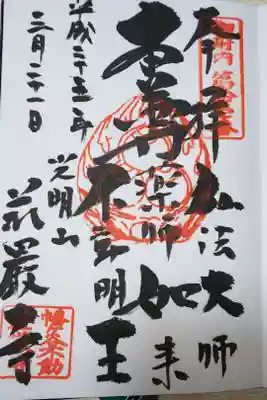 奉拝 弘法大師
本尊 薬師如来
不動明王
平成二十五年
三月二十一日
光明山
荘厳寺